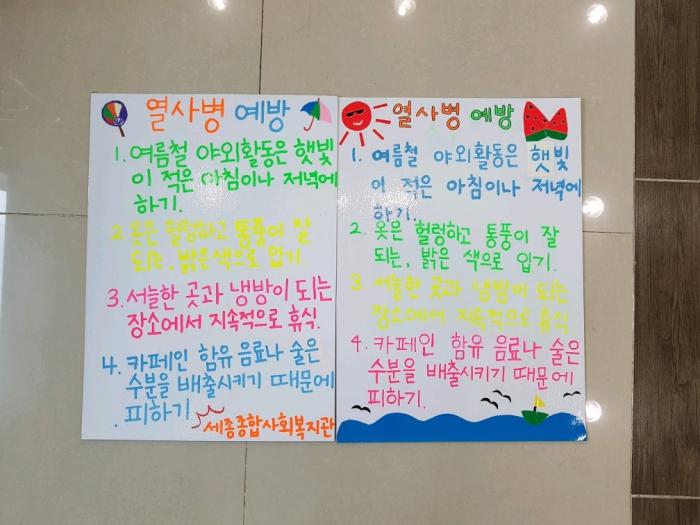 열사병 예방
1. 여름철 야외활동은 햇빛
이 적은 아침이나 저녁에
하기.
2. 옷은 헐렁하고 통풍이 잘
되는, 밝은색으로 입기
3. 서늘한 곳과 냉방이 되는
장소에서 지속적으로 휴식.
4. 카페인 함유 음료나 술은
수분을 배출시키기 때문에
피하기.
세종종합사회복지관
열사병 예방
1. 여름철 야외활동은 햇빛
이 적은 아침이나 저녁에
하기.
2. 옷은 헐렁하고 통풍이 잘
되는, 밝은 색으로 입기.
3. 서늘한 곳과 냉방이 되는
장소에서 지속적으로 휴식
4. 카페인 함유 음료나 술은
수분을 배출시키기 때문에
피하기.